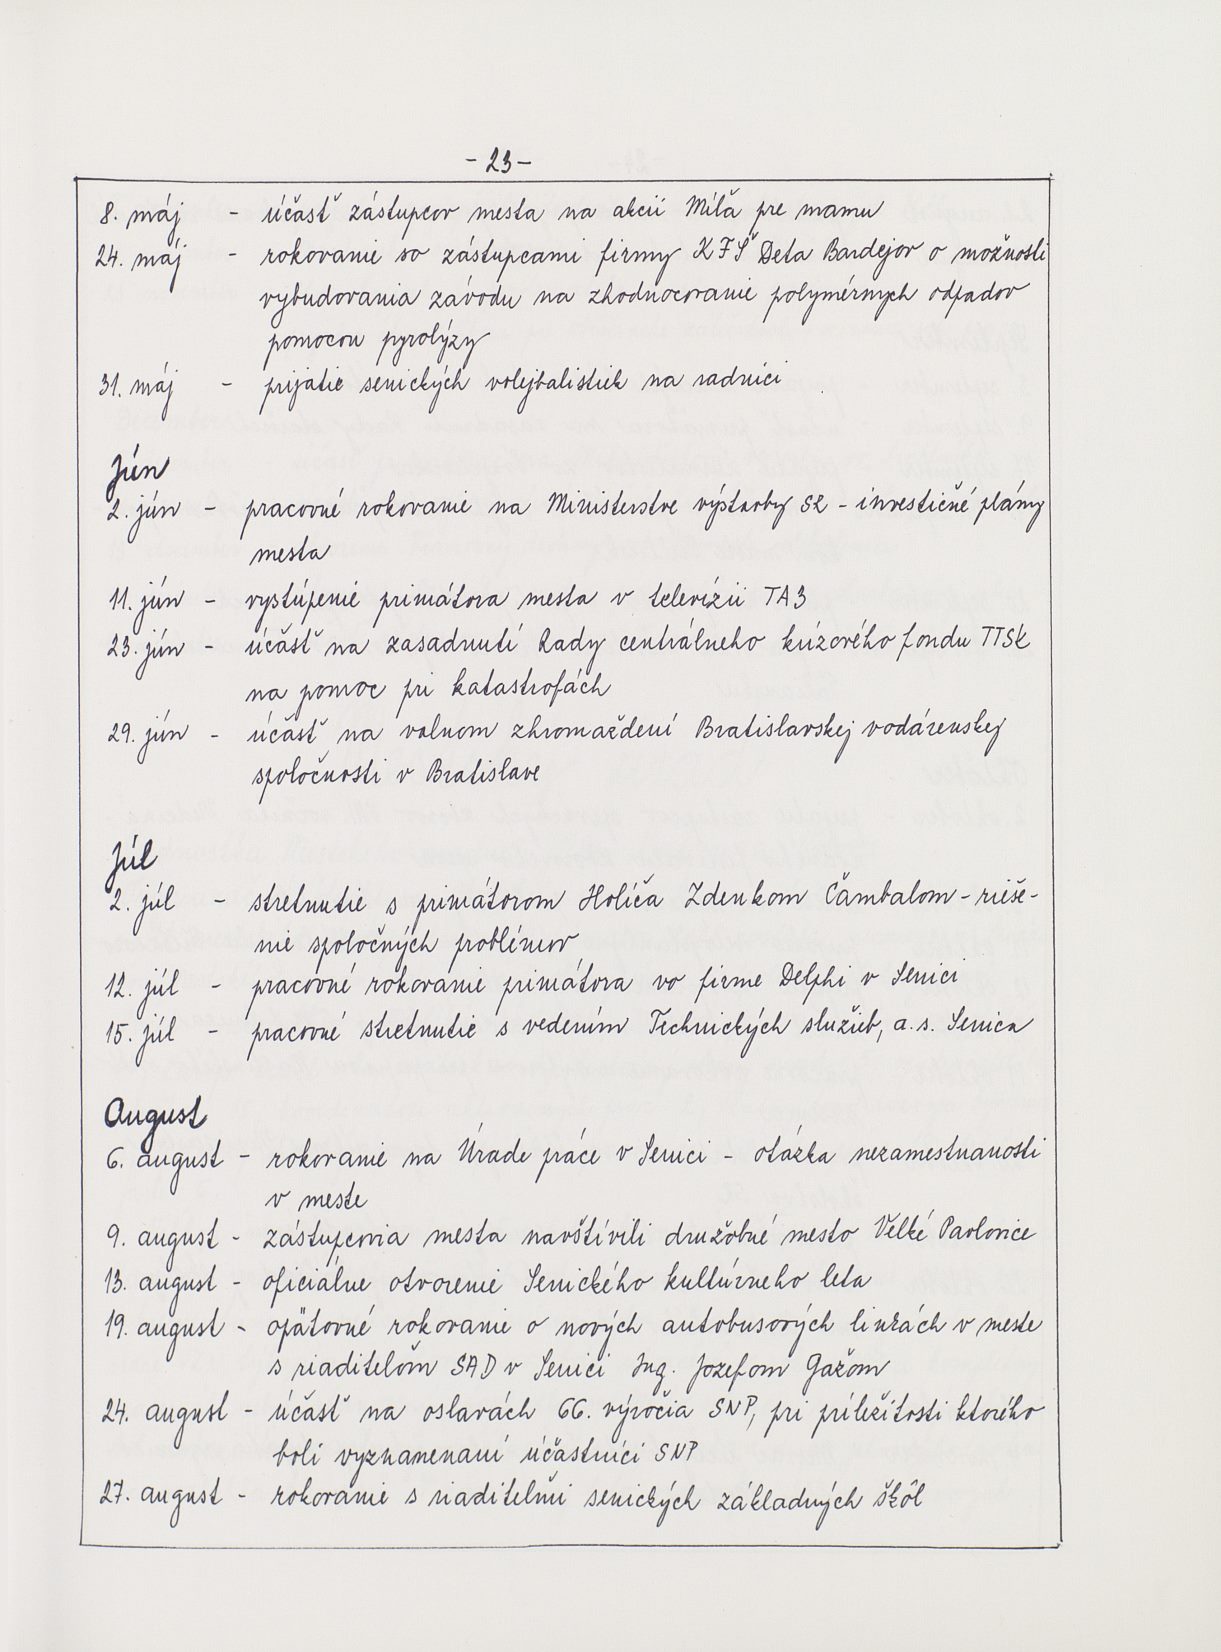 - 23 -
8. máj - účasť zástupcov mesta na akcii Míľa pre mamu
24. máj - rokovanie so zástupcami firmy KFŠ Deta Bardejov o možnosti
vybudovania závodu na zhodnocovanie polymérnych odpadov
pomocou pyrolýzy
31. máj - prijatie senických volejbalistiek na radnici
Jún
2. jún - pracovné rokovanie na Ministerstve výstavby SR - investičné plány
mesta
11. jún - vystúpenie primátora mesta v televízii TA3
23. jún - účasť na zasadnutí Rady centrálneho krízového fondu TTSK
na pomoc pri katastrofách
29. jún - účasť na valnom zhromaždení Bratislavskej vodárenskej
spoločnosti v Bratislave
Júl
2. júl - stretnutie s primátorom Holíča Zdenkom Čambalom - rieše-
nie spoločných problémov
12. júl - pracovné rokovanie primátora vo firme Delphi v Senici
15. júl - pracovné stretnutie s vedením Technických služieb, a.s. Senica
August
6. august - rokovanie na Úrade práce v Senici - otázka nezamestnanosti
v meste
9. august - zástupcovia mesta navštívili družobné mesto Velké Pavlovice
13. august - oficiálne otvorenie Senického kultúrneho leta
19. august - opätovné rokovanie o nových autobusových linkách v meste
s riaditeľom SAD v Senici Ing. Jozefom Gažom
24. august - účasť na oslavách 66. výročia SNP, pri príležitosti ktorého
boli vyznamenaní účastníci SNP
27. august - rokovanie s riaditeľmi senických základných škôl